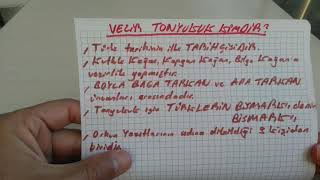 VEZİR TONYUKUK KİMDİR?
Türk tarihinin ilk TARİHÇİSİDİR.
Kutluk Kağan, Kapgan Kağan, Bilge Kağan'a
vezirlik yapmıştır.
BOYLA BAGA TARKAN ve APA TARKAN
ünvanları arasındadır.
Tonyukuk için TÜRKLERİN BİSMARKI, denir
BİSMARKI,
Orhun Yazıtlarının adına dikildiği 3 kişiden
biridir.